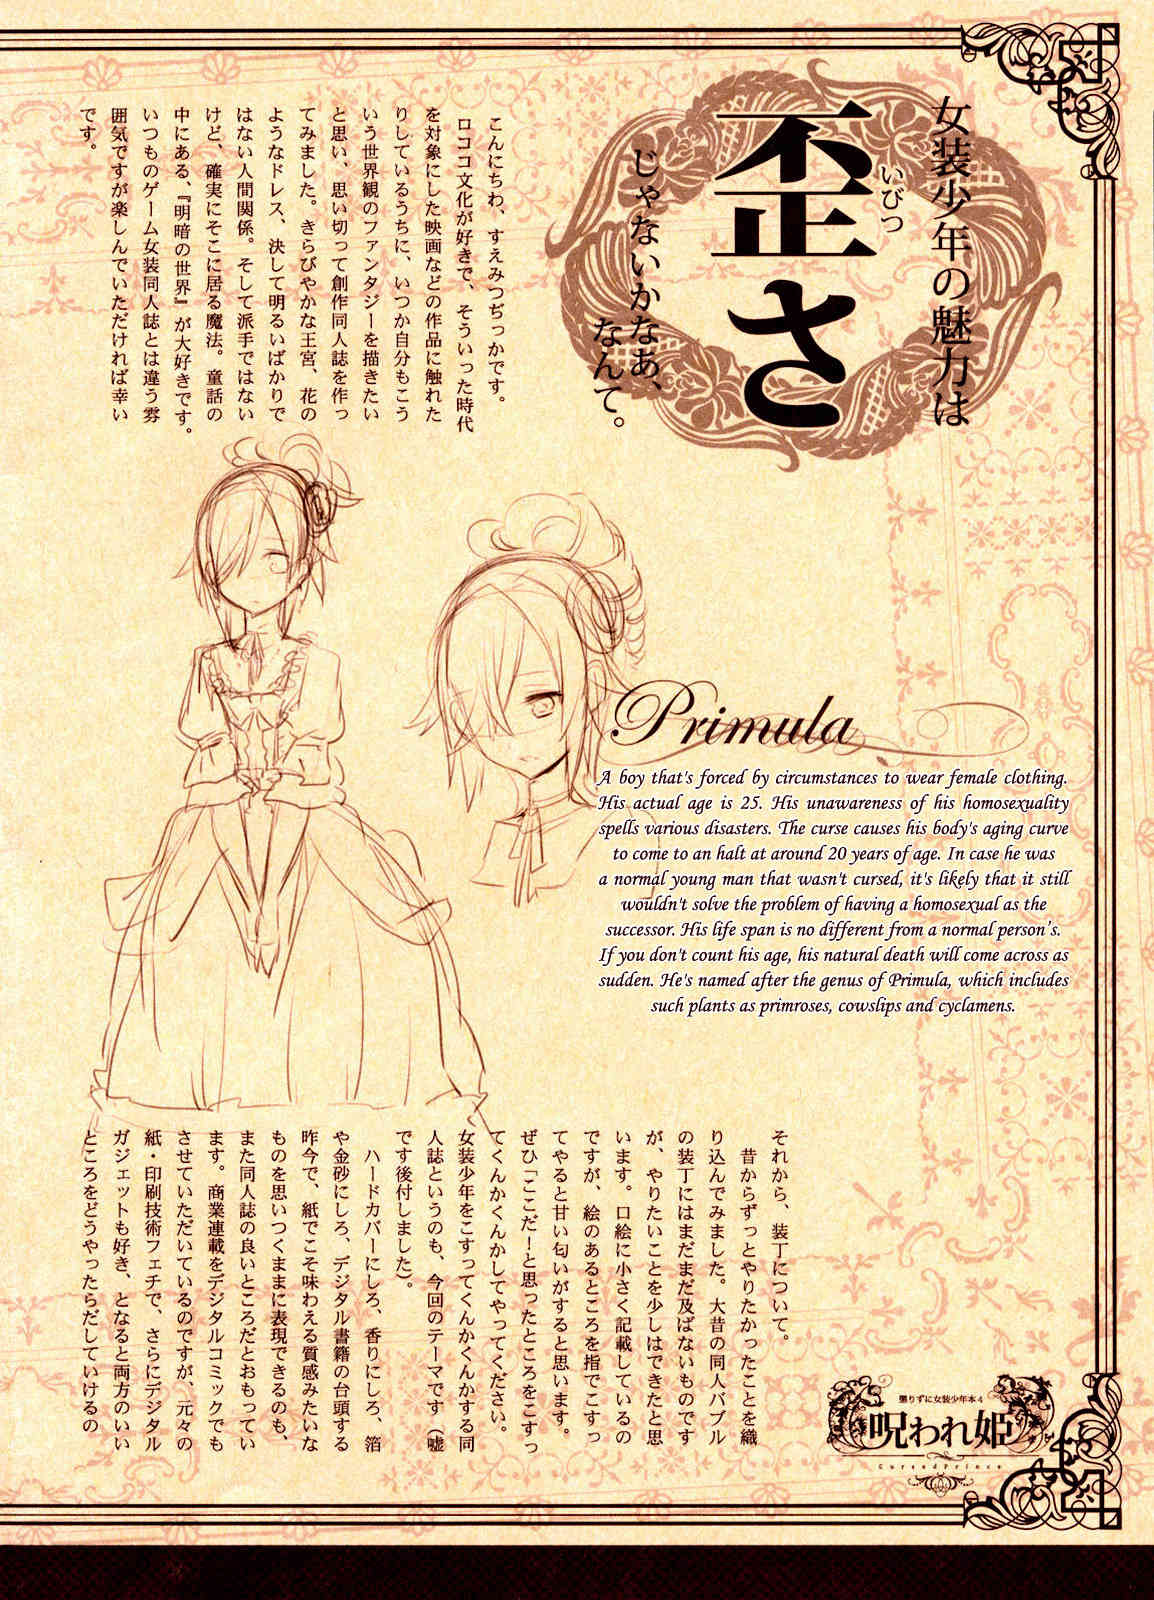 女装少年の魅力は
いびつ
歪さ
じゃないかなあ、
なんて。
こんにちわ、すえみつぢっかです。
ロココ文化が好きで、そういった時代
を対象にした映画などの作品に触れた
りしているうちに、いつか自分もこう
いう世界観のファンタジーを描きたい
と思い、思い切って創作同人誌を作っ
てみました。きらびやかな王宮、花の
ようなドレス、決して明るいばかりで
はない人間関係。そして派手ではない
けど、確実にそこに居る魔法。童話の
中にある、『明暗の世界』が大好きです。
いつものゲーム女装同人誌とは違う雰
囲気ですが楽しんでいただければ幸い
です。
Primula
A boy that's forced by circumstances to wear female clothing.
His actual age is 25. His unawareness of his homosexuality
spells various disasters. The curse causes his body's aging curve
to come to an halt at around 20 years of age. In case he was
a normal young man that wasn't cursed, it's likely that it still
wouldn't solve the problem of having a homosexual as the
successor. His life span is no different from a normal person's.
If you don't count his age, his natural death will come across as
sudden. He's named after the genus of Primula, which includes
such plants as primroses, cowslips and cyclamens.
それから、装丁について。
昔からずっとやりたかったことを織
り込んでみました。大昔の同人バブル
の装丁にはまだまだ及ばないものです
が、やりたいことを少しはできたと思
います。口絵に小さく記載しているの
ですが、絵のあるところを指でこすっ
てやると甘い匂いがすると思います。
ぜひ「ここだーと思ったところをこすっ
てくんかくんかしてやってください。
女装少年をこすってくんかくんかする同
人誌というのも、今回のテーマです（嘘
です後付しました）。
ハードカバーにしろ、香りにしろ、箔
や金砂にしろ、デジタル書籍の台頭する
昨今で、紙でこそ味わえる質感みたいな
ものを思いつくままに表現できるのも、
また同人誌の良いところだとおもってい
ます。商業連載をデジタルコミックでも
させていただいているのですが、元々の
紙・印刷技術フェチで、さらにデジタル
ガジェットも好き、となると両方のいい
ところをどうやったらだしていけるの
懲りずに女装少年本4
呪われ姫
CursedPrince